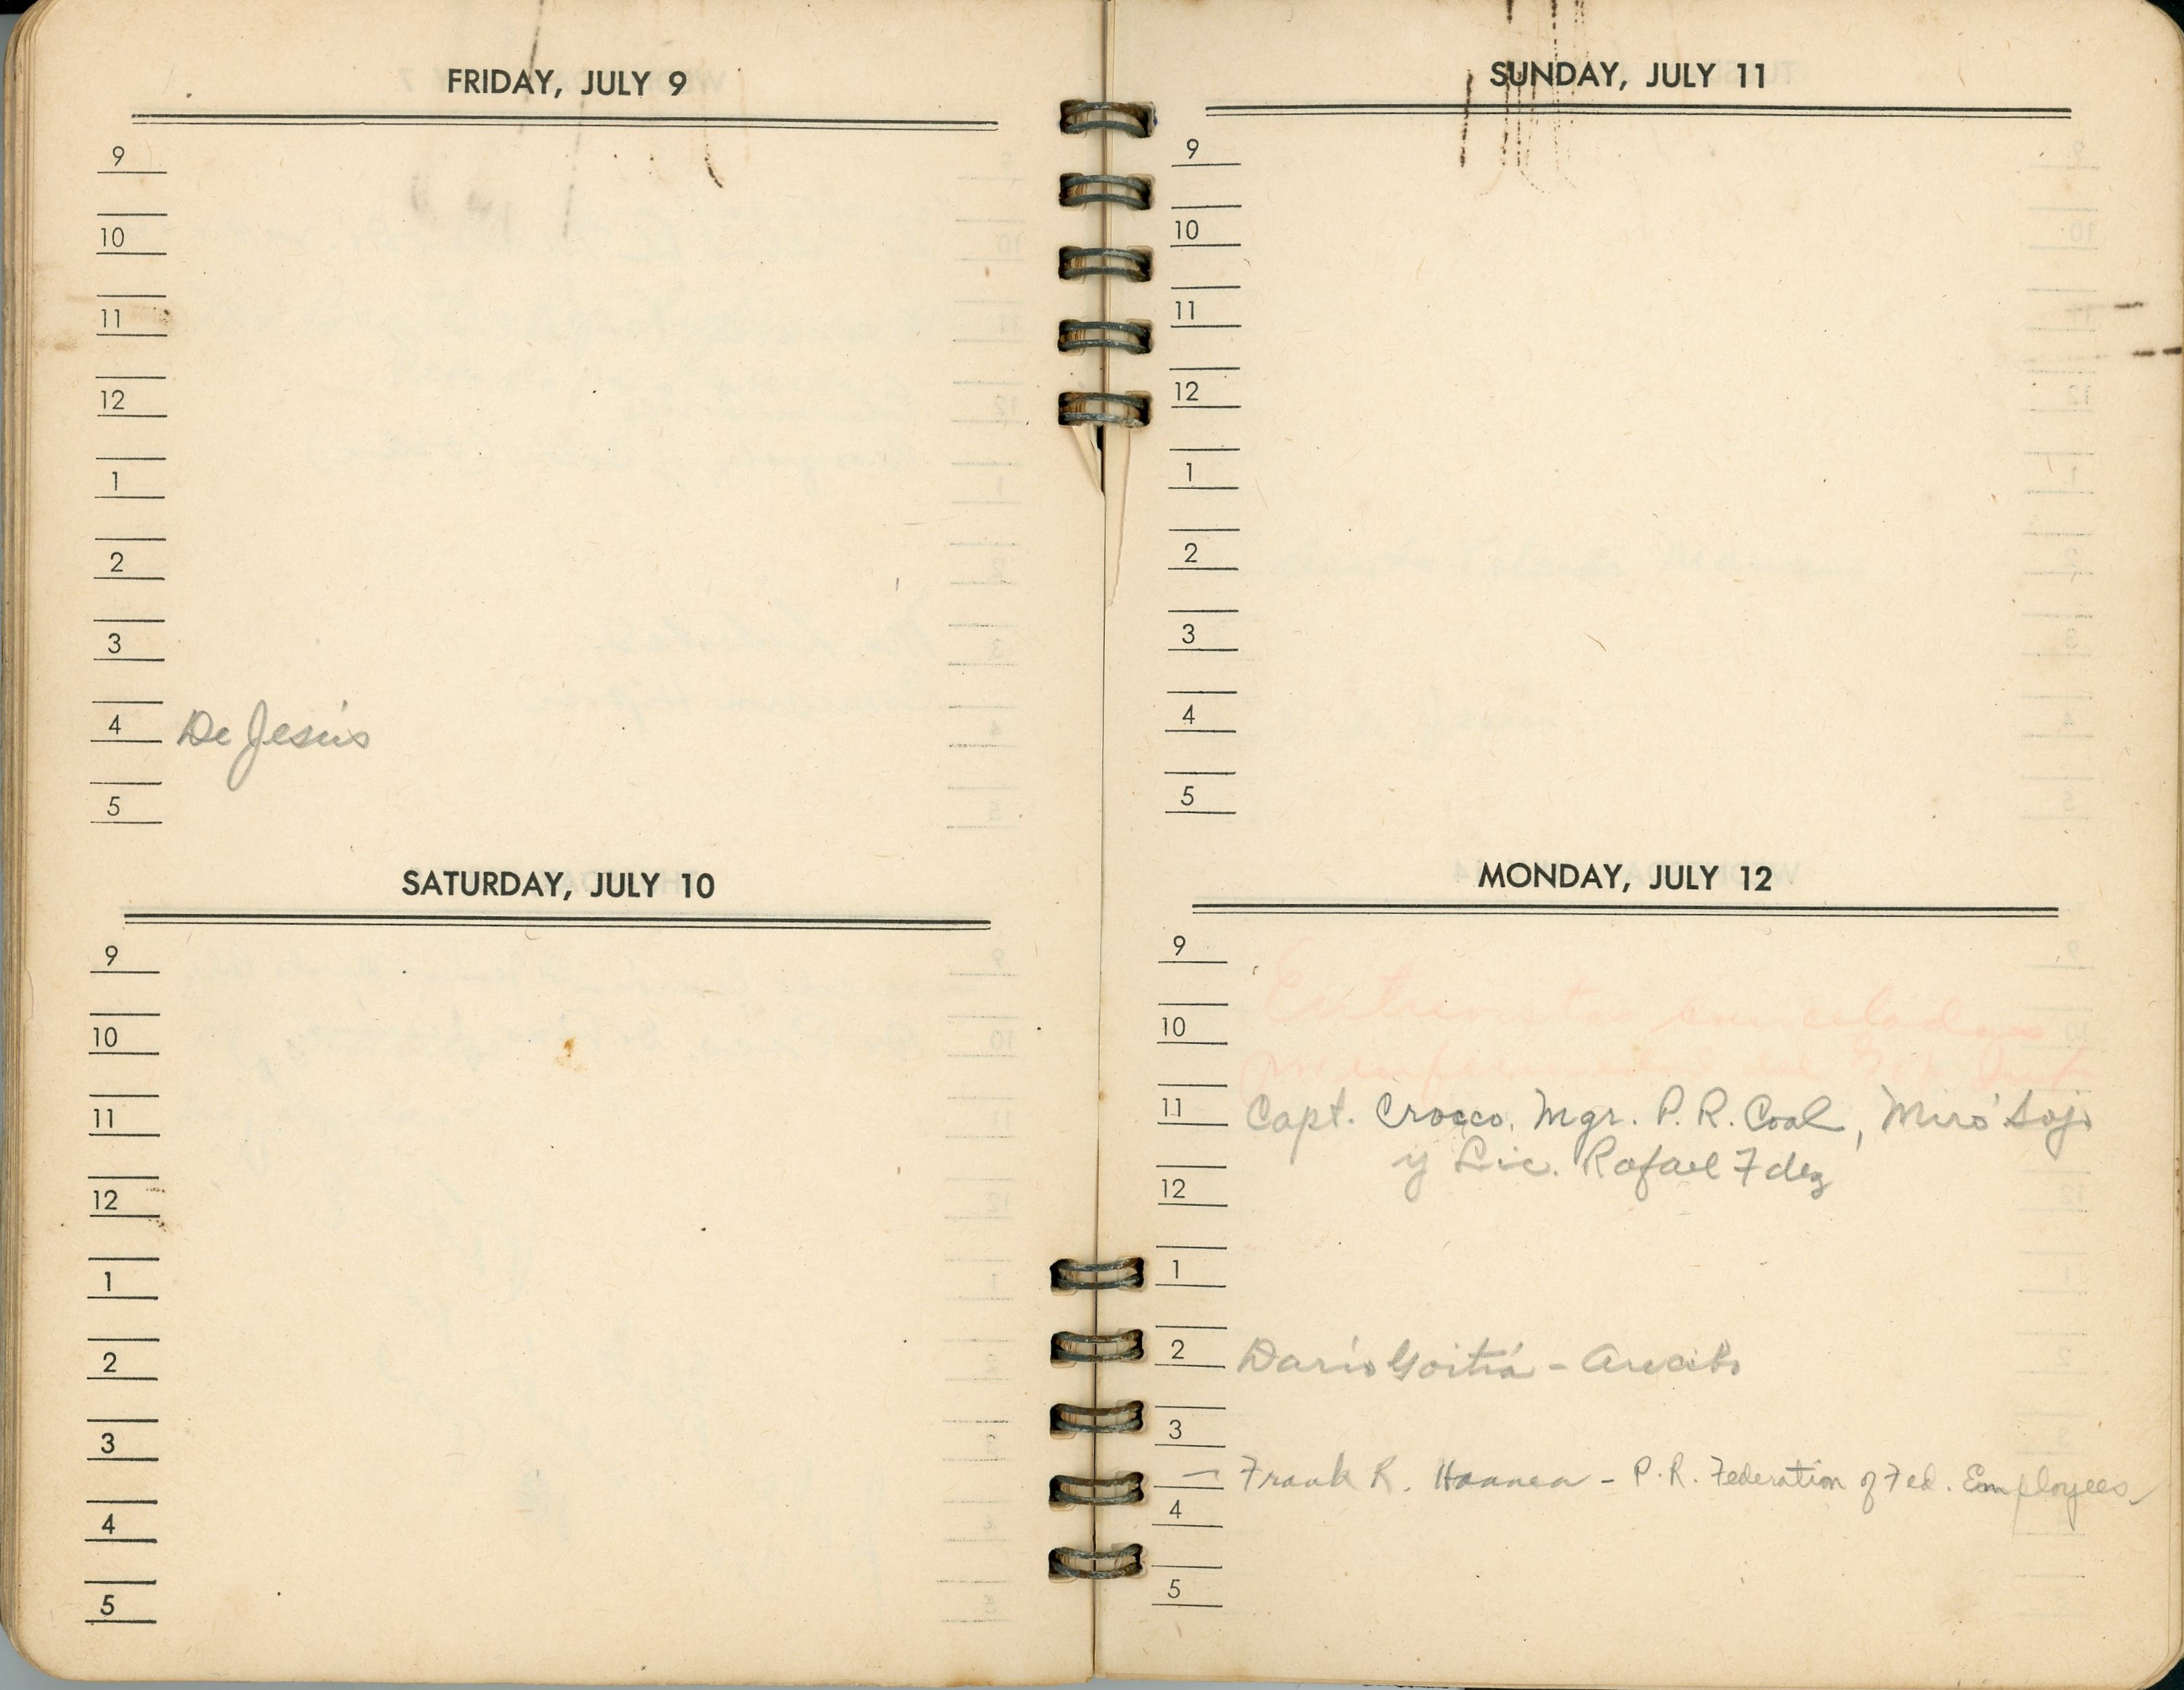 FRIDAY, JULY 9
9
10
11
12
1
2
3
4 De Jesús
5
SATURDAY, JULY 10
9
10
11
12
1
2
3
4
5
SUNDAY, JULY 11
9
10
11
12
1
2
3
4
5
MONDAY, JULY 12
9
Entrevistas canceladas
10
por enfermedad de
11 Capt. Crocco, Mgr. P. R. Coal, Miró Sojo
y Lic. Rafael Fdez
12
1
2 Darío Goitía - Arecibo
3
— Frank R. - P. R. Federation of Fed. Employees
4
5